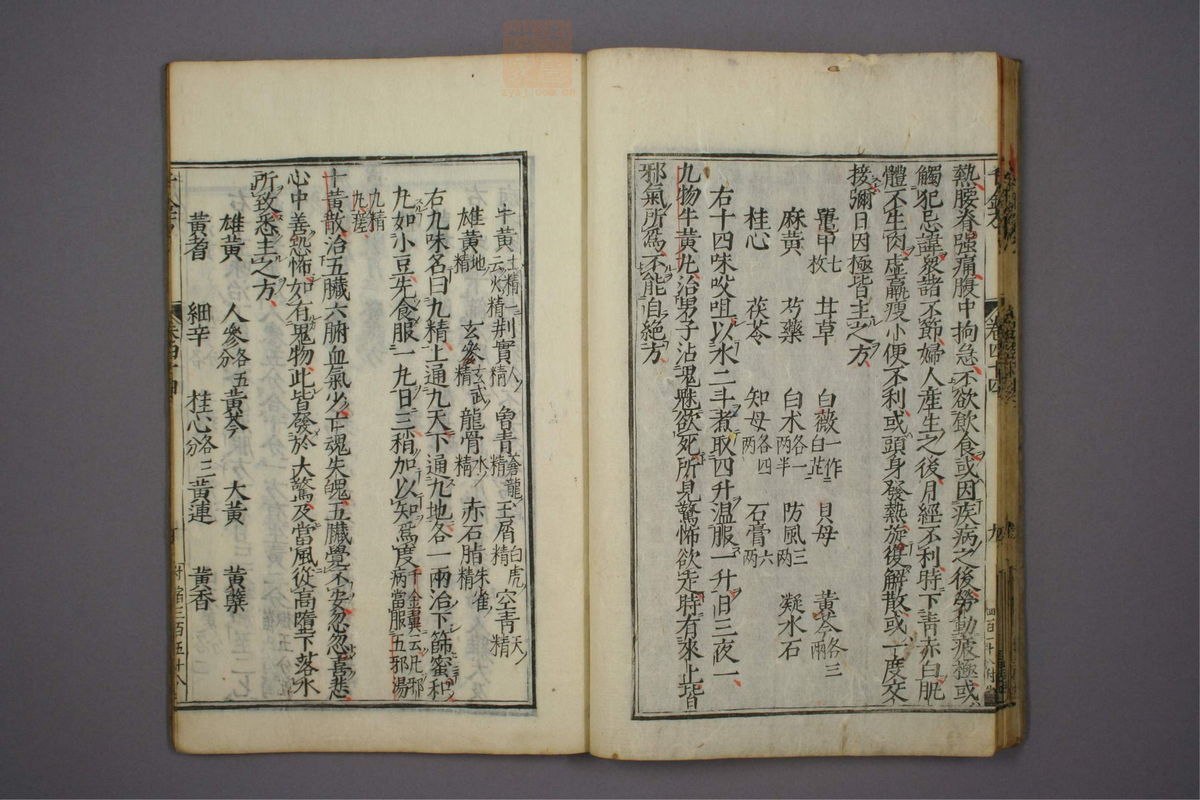 熱腰脊強痛腹中拘急不欲飲食或因疾病之後勞動疲極或
觸犯忌諱衆諸不節婦人產生之後月經不利時下青赤白肥
體不生肉虛羸瘦小便不利或頭身發熱旋復解散或一度交
接彌日困極皆主之方
鼈甲七枚 甘草 白薇一作白芷 貝母 黃芩各三兩
麻黃 芍藥 白朮各一兩半 防風三兩 凝水石
桂心 茯苓 知母各四兩 石膏六兩
右十四味㕮咀以水二斗煮取四升温服一升日三夜一
九物牛黃丸治男子沾鬼魅欲死所見驚怖欲走時有來止皆
邪氣所爲不能自絶方
千金方 卷四十四 九
牛黃土精一云火精 荆實人精 曾青蒼龍精 玉屑白虎精 空青天精
雄黃地精 玄參玄武精 龍骨水精 赤石脂朱雀精
右九味名曰九精上通九天下通九地各一兩治下篩蜜和
丸如小豆先食服一丸日三稍加以知爲度千金翼云凡邪病當服五邪湯
九精
丸瘥
十黃散治五臟六腑血氣少亡魂失魄五臟覺不安忽忽喜悲
心中善恐怖如有鬼物此皆發於大驚及當風從高墮下落水
所致悉主之方
雄黃 人參各五分 黃芩 大黃 黃蘗
黃耆 細辛 桂心各三分 黃連 黃香